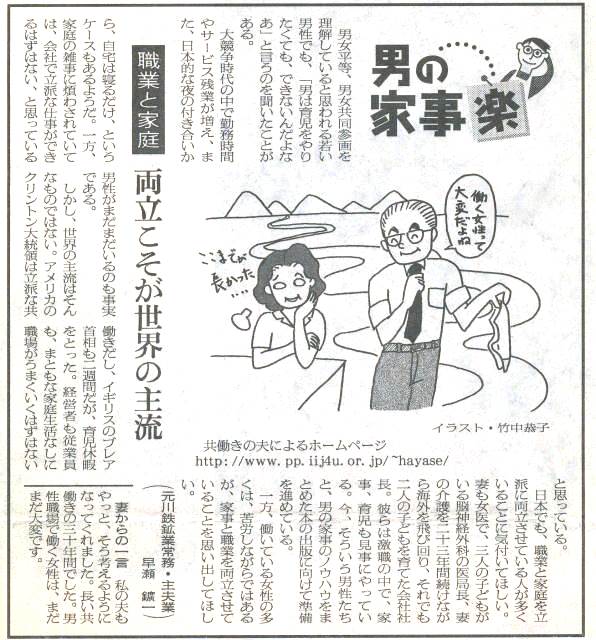 男の
家事楽
職業と家庭
両立こそが世界の主流
男女平等、男女共同参画を
理解していると思われる若い
男性でも、「男は育児をやり
たくても、できないんだよな
あ」と言うのを聞いたことが
ある。
大競争時代の中で勤務時間
やサービス残業が増え、ま
た、日本的な夜の付き合いか
ら、自宅は寝るだけ、という
ケースもあるようだ。一方、
家庭の雑事に煩わされていて
は、会社で立派な仕事ができ
るはずはない、と思っている
男性がまだまだいるのも事実
である。
しかし、世界の主流はそん
なものではない。アメリカの
クリントン大統領は立派な共
働きだし、イギリスのブレア
首相も二週間だが、育児休暇
をとった。経営者も従業員
も、まともな家庭生活なしに
職場がうまくいくはずはない
と思っている。
日本でも、職業と家庭を立
派に両立させている人が多く
いることに気付いてほしい。
妻も女医で、三人の子どもが
いる脳神経外科の医局長、妻
の介護を二十三年間続けなが
ら海外を飛び回り、それでも
二人の子どもを育てた会社社
長。彼らは激職の中で、家
事、育児も見事にやってい
る。今、そういう男性たち
と、男の家事のノウハウをま
とめた本の出版に向けて準備
を進めている。
一方、働いている女性の多
くは、苦労しながらではある
が、家事と職業を両立させて
いることを思い出してほし
い。
（元川鉄鉱業常務・主夫業
早瀬　鑛一）
妻からの一言　私の夫も
やっと、そう考えるように
なってくれました。長い共
働きの三十年間でした。男
性職場で働く女性は、まだ
まだ大変です。
働く女性って
大変だよね
ここまでが
長かった
‥‥
イラスト・竹中恭子
共働きの夫によるホームページ
http://www.pp.iij4u.or.jp/~hayase/